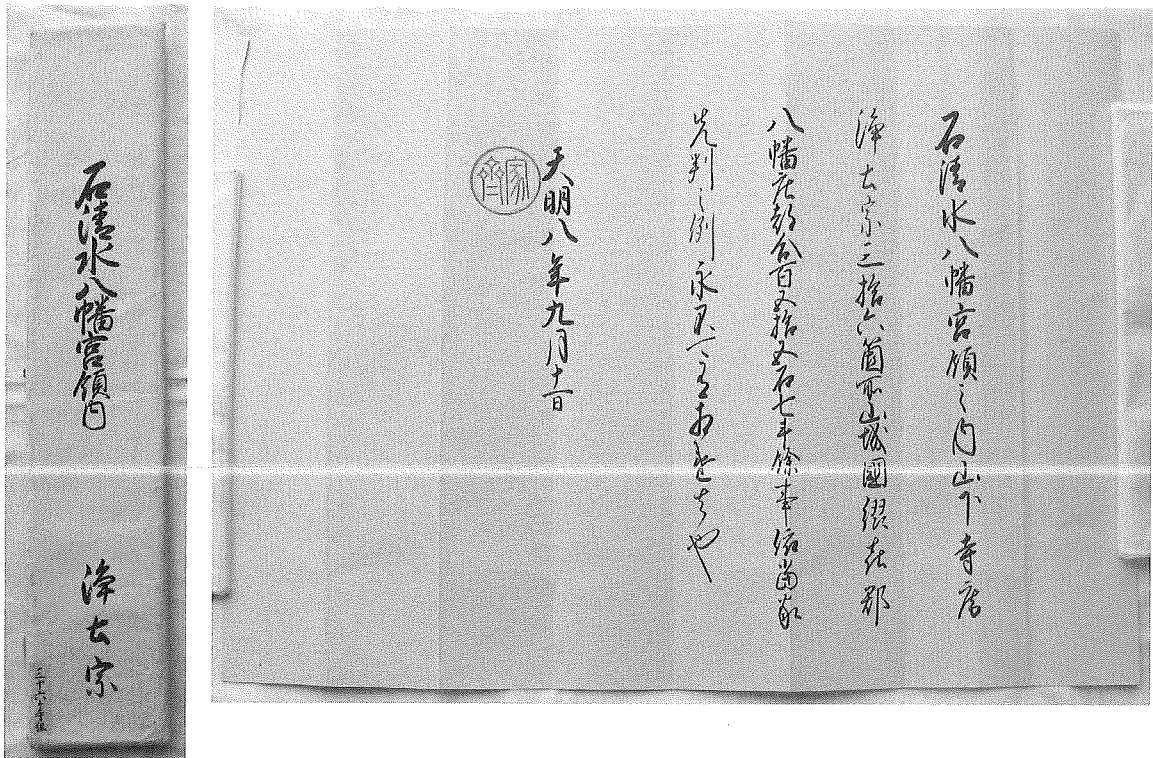 石清水八幡宮領之内山下寺庵
浄土宗三拾六箇所山城國綴喜郡
八幡庄都合百五拾五石七斗餘事依當家
先判之例永不可有相違者也
天明八年九月十一日
家齊
石清水八幡宮領内
浄土宗